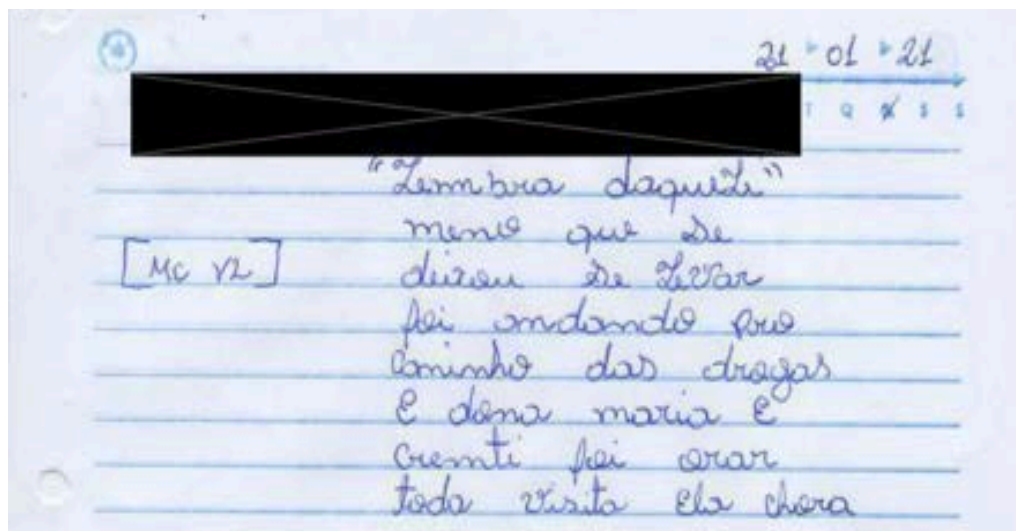 21 01 21
T Q Q S S
"Lembra daquele"
meno que se
deixou se levar
[MC V2]
foi andando pro
caminho das drogas
e dona maria e
crenti foi orar
toda visita ela chora